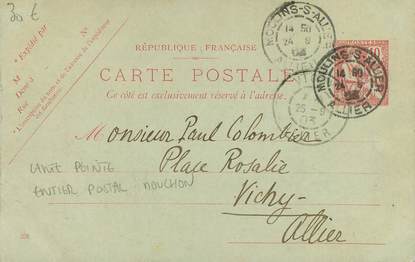 30 €
RÉPUBLIQUE FRANÇAISE
CARTE POSTALE
Ce côté est exclusivement réservé à l'adresse.
M Expédié par
Demt à
Rue
MOULINS-S-ALLIER
14 50
24 9
03
ALLIER
MOULINS-S-ALLIER
14 50
24 9
03
ALLIER
25 -9
03
10
Monsieur Paul Colombier
Place Rosalie
Vichy-
Allier
CARTE POINTE
ENTIER POSTAL MOUCHON